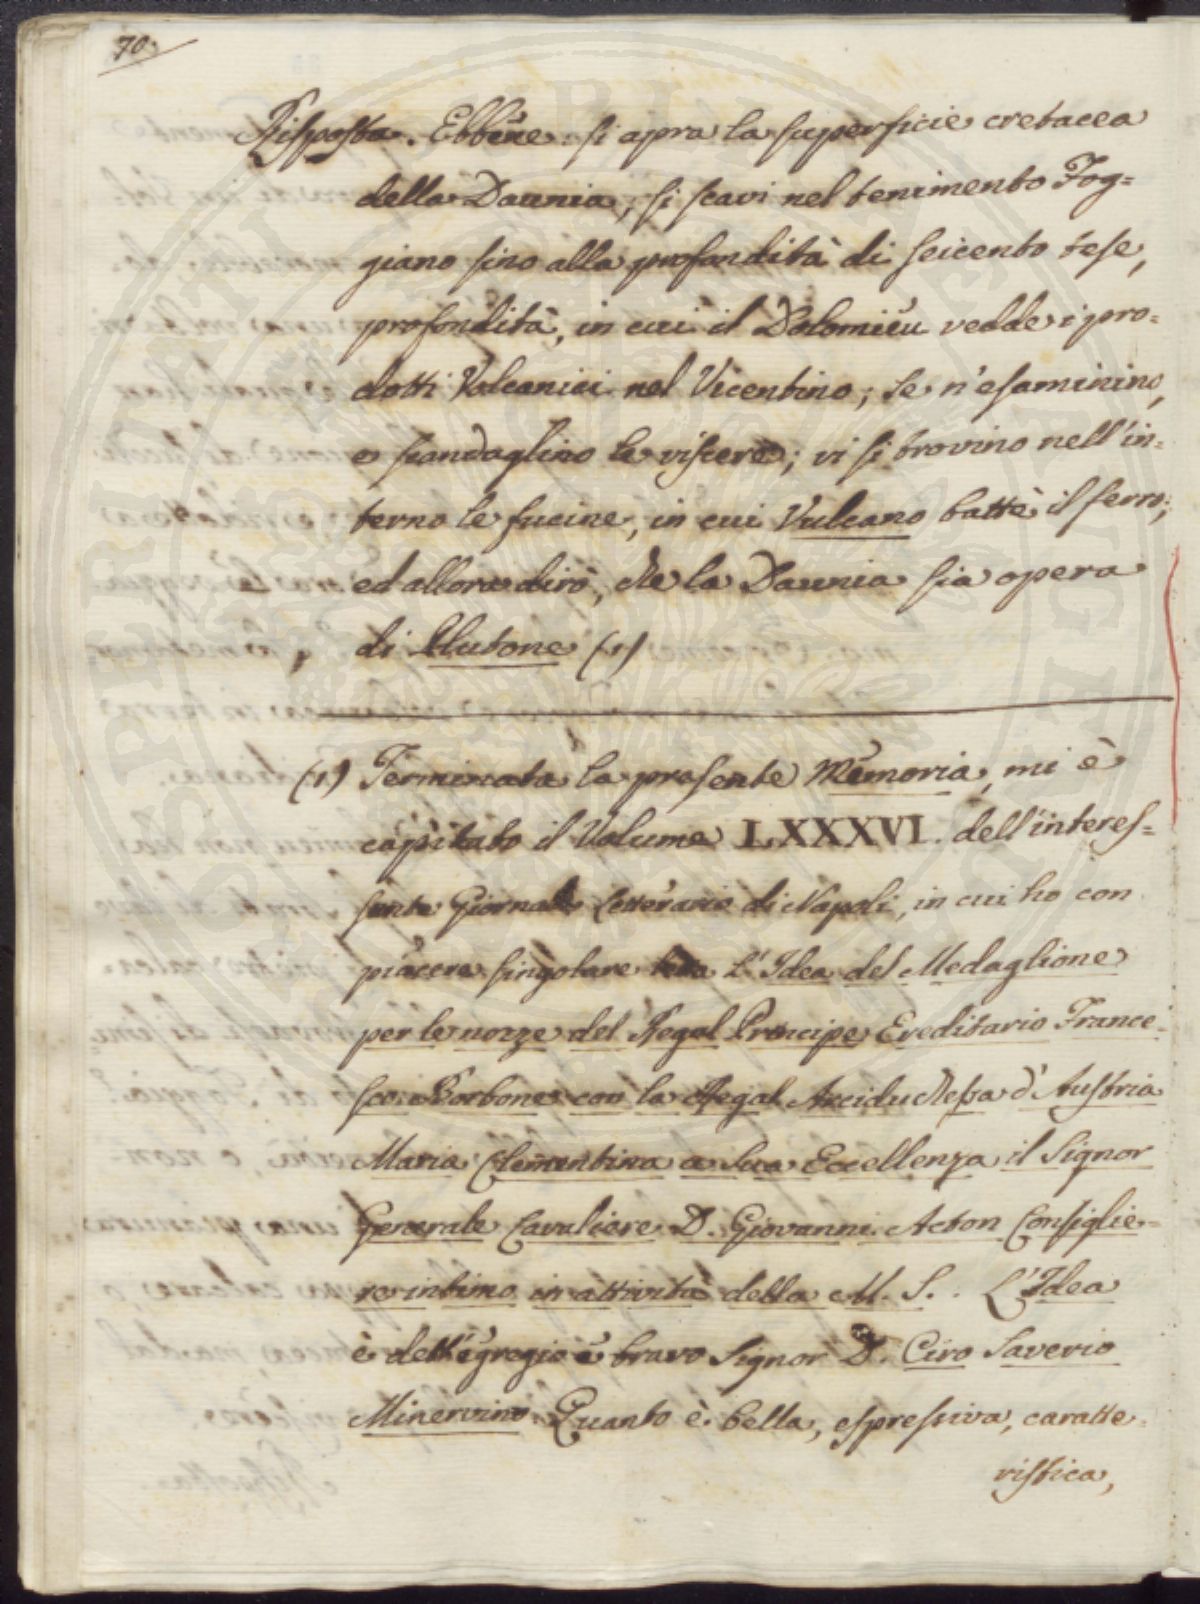 70.
Risposta. Ebbene: si apra la superficie cretacea
della Daunia; si scavi nel tenimento Fog=
giano sino alla profondità di seicento tese,
profondità, in cui il Dolomieu vedde i pro=
dotti Volcanici nel Vicentino; se n'esaminino,
e scandaglino le viscere; vi si trovino nell'in=
terno le fucine, in cui Vulcano battè il ferro;
ed allora dirò, che la Daunia sia opera
di Plutone (1)
(1) Terminata la presente Memoria, mi è
capitato il Volume LXXXVI. dell'interes=
sante Giornale Letterario di Napoli, in cui ho con
piacere singolare letta L'Idea del Medaglione
per le nozze del Regal Principe Ereditario France=
sco Borbone con la Regal Arciduchessa d'Austria
Maria Clementina a Sua Eccellenza il Signor
Generale Cavaliere D. Giovanni Acton Consiglie=
re intimo in attività della M. S.. L'Idea
è dell'egregio e bravo Signor D. Ciro Saverio
Minervino. Quanto è bella, espressiva, caratte=
ristica,